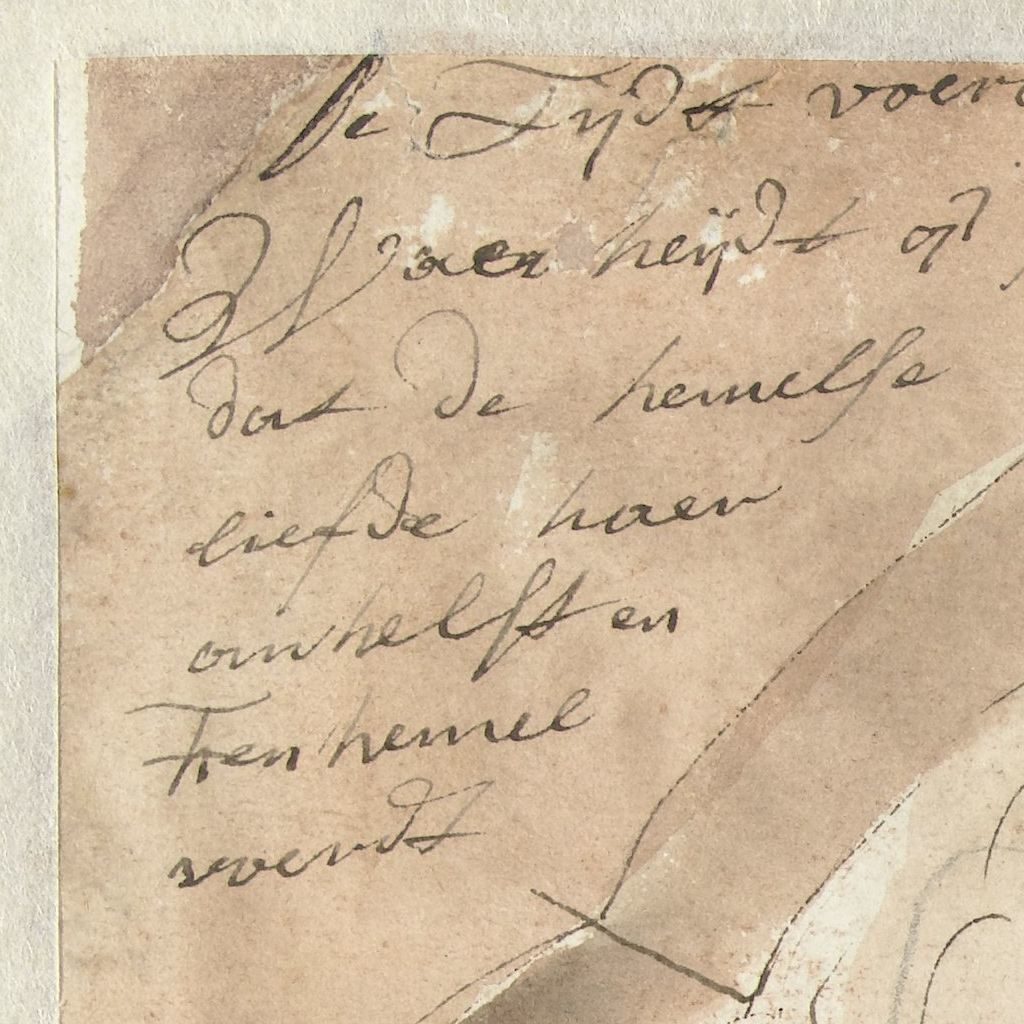 De Tijdt voer
Waer heijdt op
dat de hemelse
liefde haer
omhelst en
Ten hemel
voerdt